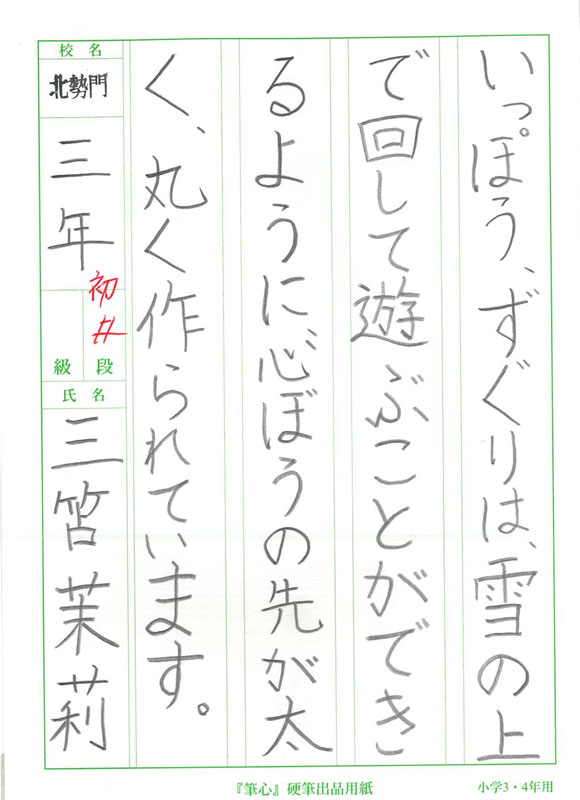 いっぽう、ずぐりは、雪の上
で回して遊ぶことができ
るように、心ぼうの先が太
く、丸く作られています。
校名
北勢門
三年
初
段
級
氏名
三笘茉莉
『筆心』硬筆出品用紙
小学3・4年用